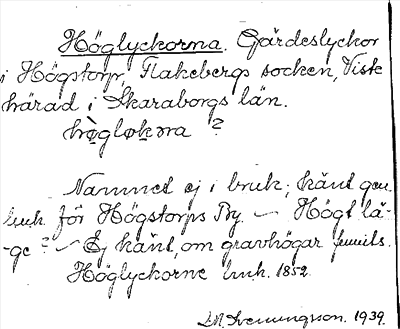 Höglyckorna. Gärdeslyckor
i Högstorp, Flakebergs socken, Viste
härad i Skaraborgs län.
hö̀gloḵna ?
Namnet ej i bruk; känt gen.
luk. för Högstorps By. — Högt lä-
-ge? — Ej känt, om gravhögar funnits.
Höglyckorne luk. 1852.
M. Svenungsson. 1939.